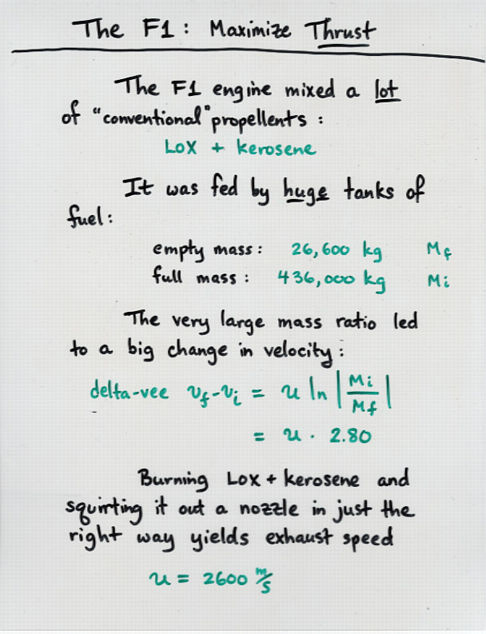 The F1: Maximize Thrust
The F1 engine mixed a lot
of "conventional" propellents:
LOX + kerosene
It was fed by huge tanks of
fuel:
empty mass: 26,600 kg M_f
full mass: 436,000 kg M_i
The very large mass ratio led
to a big change in velocity:
delta-vee v_f - v_i = u ln |M_i / M_f|
= u · 2.80
Burning LOX + kerosene and
squirting it out a nozzle in just the
right way yields exhaust speed
u = 2600 m/s